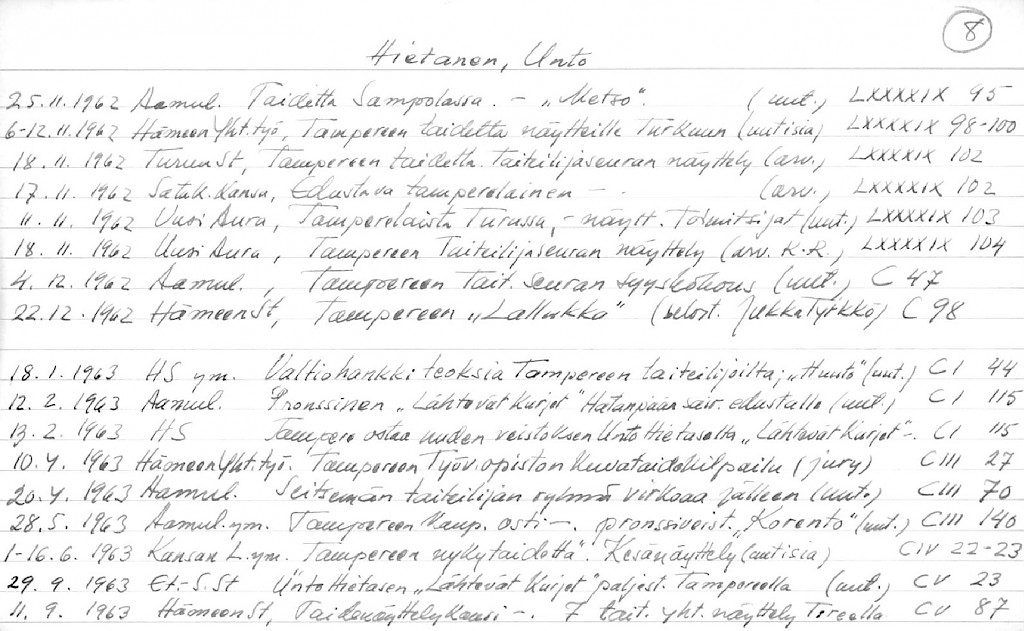 8
Hietanen, Unto
25.11.1962 Aamul. Taidetta Sampolassa. - „Metso". (uut.) LXXXXIX 95
6-12.11.1962 Hämeen Yht.työ, Tampereen taidetta näytteille Turkuun (uutisia) LXXXXIX 98-100
18.11.1962 Turun St, Tampereen taidetta. Taiteilijaseuran näyttely (arv.) LXXXXIX 102
17.11.1962 Satak. Kansa, Edustava tamperelainen - . (arv., LXXXXIX 102
11.11.1962 Uusi Aura, Tamperelaista Turussa, - näytt. Toimitsijat (uut.) LXXXXIX 103
18.11.1962 Uusi Aura, Tampereen Taiteilijaseuran näyttely (arv. R.R.) LXXXXIX 104
4.12.1962 Aamul., Tampereen tait.seuran syyskokous (uut.) C 47
22.12.1962 Hämeen St, Tampereen „Lallukka" (selost. Jukka Tyrkkö) C 98
18.1.1963 HS ym. Valtio hankki teoksia Tampereen taiteilijoilta; „Huuto" (uut.) CI 44
12.2.1963 Aamul. Pronssinen „Lähtevät Kurjet" Hatanpään sair. edustalle (uut.) CI 115
13.2.1963 HS Tampere ostaa uuden veistoksen Unto Hietaselta „Lähtevät Kurjet" -. CI 115
10.4.1963 Hämeen Yht.työ. Tampereen Työv.opiston Kuvataidekilpailu (jury) CIII 27
20.4.1963 Aamul. Seitsemän taiteilijan ryhmä virkoaa jälleen (uut.) CIII 70
28.5.1963 Aamul. ym. Tampereen Kaup. osti -. pronssiveist. „Korento" (uut.) CIII 140
1-16.6.1963 Kansan L. ym. Tampereen nykytaidetta". Kesänäyttely (uutisia) CIV 22-23
29.9.1963 Et.-S.St Unto Hietasen „Lähtevät Kurjet" paljast. Tampereella (uut.) CV 23
11.9.1963 Hämeen St, Taidenäyttelykausi -. 7 tait. yht. näyttely Tireella CV 87